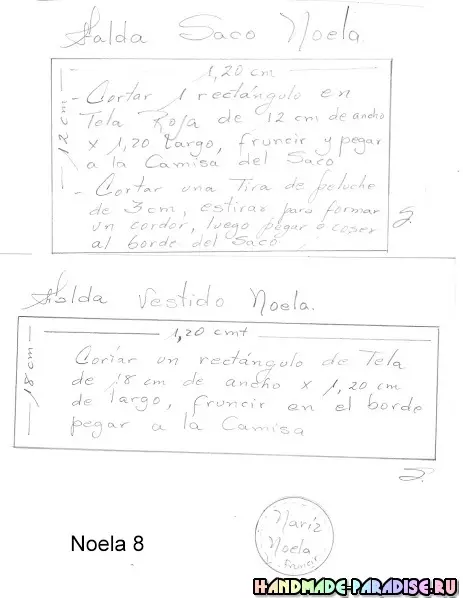 Falda Saco Noela.
1,20 cm
12 cm
- Cortar 1 rectángulo en
Tela Roja de 12 cm de ancho
x 1,20 Largo, fruncir y pegar
a la Camisa del Saco
- Cortar una Tira de peluche
de 3 cm, estirar para formar
un cordor, luego pegar o coser
al borde del Saco.
Falda Vestido Noela.
1,20 cmt
18 cm
Cortar un rectángulo de Tela
de 18 cm de ancho x 1,20 cm
de largo, fruncir en el borde
pegar a la Camisa
2.
Nariz
Noela
Fruncir
Noela 8
HANDMADE-PARADISE.RU